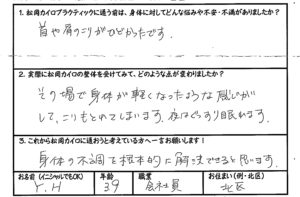 1. 松岡カイロプラクティックに通う前は、身体に対してどんな悩みや不安・不満がありましたか?
首や肩のこりがひどかったです。
2. 実際に松岡カイロの整体を受けてみて、どのような点が変わりましたか?
その場で身体が軽くなったような感じが
して、こりもとれてしまいます。夜はぐっすり眠れます。
3. これから松岡カイロに通おうと考えている方へ一言お願いします!
身体の不調を根本的に解決できると思います。
お名前(イニシャルでもOK) 年齢 職業 お住まい(例・北区)
Y.H 39 会社員 北区